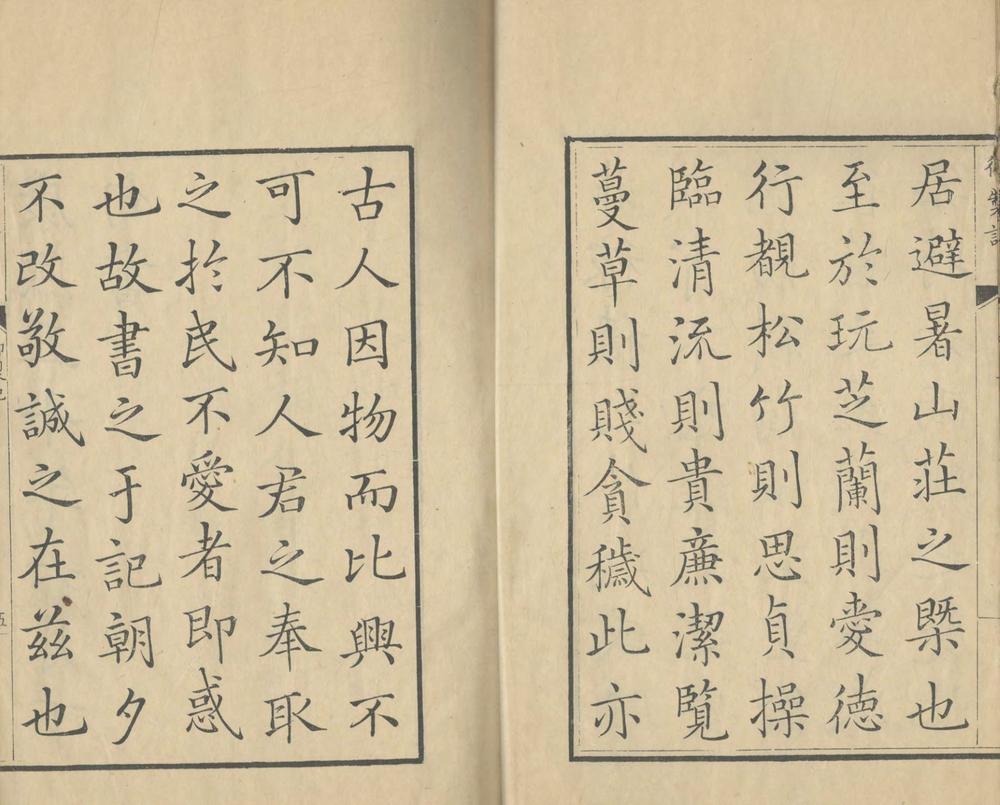 居避暑山莊之槩也
至於玩芝蘭則愛德
行覩松竹則思貞操
臨清流則貴廉潔覽
蔓草則賤貪穢此亦
古人因物而比興不
可不知人君之奉取
之於民不愛者即惑
也故書之于記朝夕
不改敬誠之在茲也